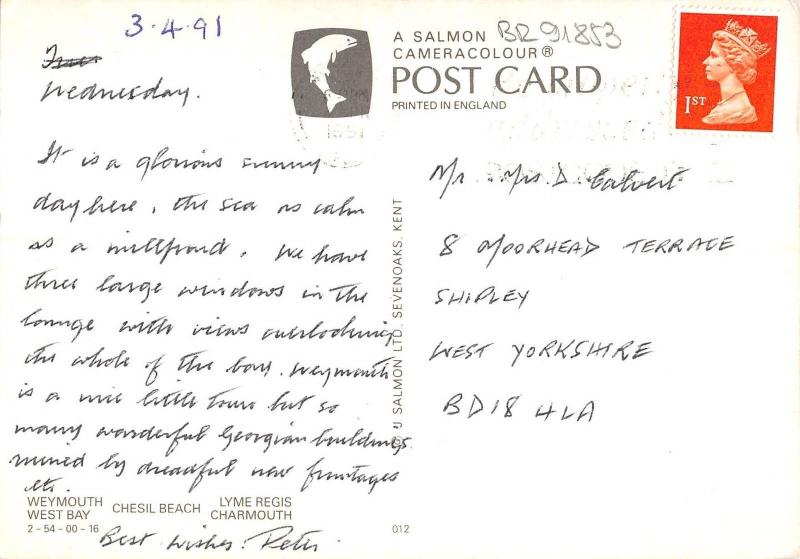 3.4.91
Wednesday.
It is a glorious sunny
day here, the sea as calm
as a millpond. We have
three large windows in the
lounge with views overlooking
the whole of the bay. Weymouth
is a nice little town but so
many wonderful Georgian buildings
ruined by dreadful new frontages
etc.
Best wishes. Peter
WEYMOUTH
WEST BAY
CHESIL BEACH
LYME REGIS
CHARMOUTH
2-54-00-16
012
A SALMON
CAMERACOLOUR®
POST CARD
PRINTED IN ENGLAND
BR91853
1ST
1991
J SALMON LTD. SEVENOAKS. KENT
Mr. Mrs. D. Calvert
8 MOORHEAD TERRACE
SHIPLEY
WEST YORKSHIRE
BD18 4LA